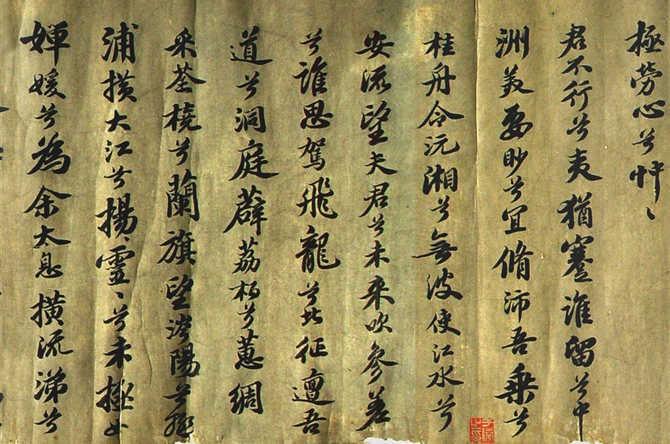 極勞心兮忡〻
君不行兮夷猶蹇誰留兮中
洲美要眇兮宜脩沛吾乘兮
桂舟令沅湘兮無波使江水兮
安流望夫君兮未来吹參差
兮誰思駕飛龍兮北征邅吾
道兮洞庭薜荔柏兮蕙綢
采荃橈兮蘭旗望涔陽兮極
浦横大江兮揚〻靈〻兮未極女
嬋媛兮為余太息横流涕兮